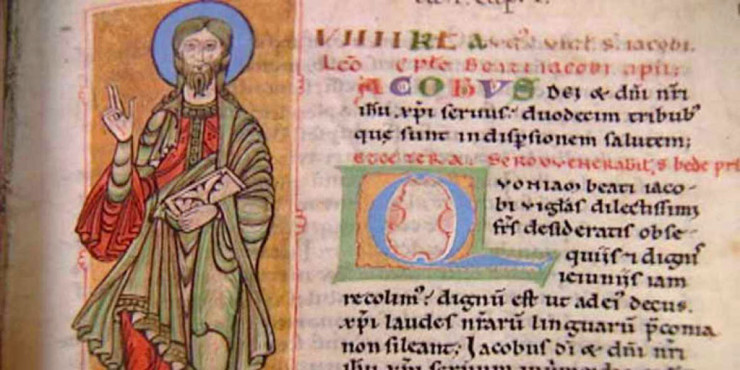 s. iacobi.
Lco eptƚe beati iacobi apƚi:
JACOBVS DEI & dñi nr̃i
ihũ xp̃i seruus: duodecim tribubꝰ
quę sunt in disp̃sionem salutem;
bede
QVONIAM beati iaco-
bi vigƚias dilectissimi
fr̃s desideratis obse-
quijs & dignis
ieiunijs iam
recolimꝰ: dignũ est ut ad eiꝰ decus.
xp̃i laudes nr̃arũ linguarũ p̃conia
non sileant; Jacobus di & dñi nr̃i
ihũ xp̃i